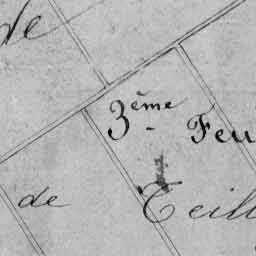 de
3ème
Feu
de Teill